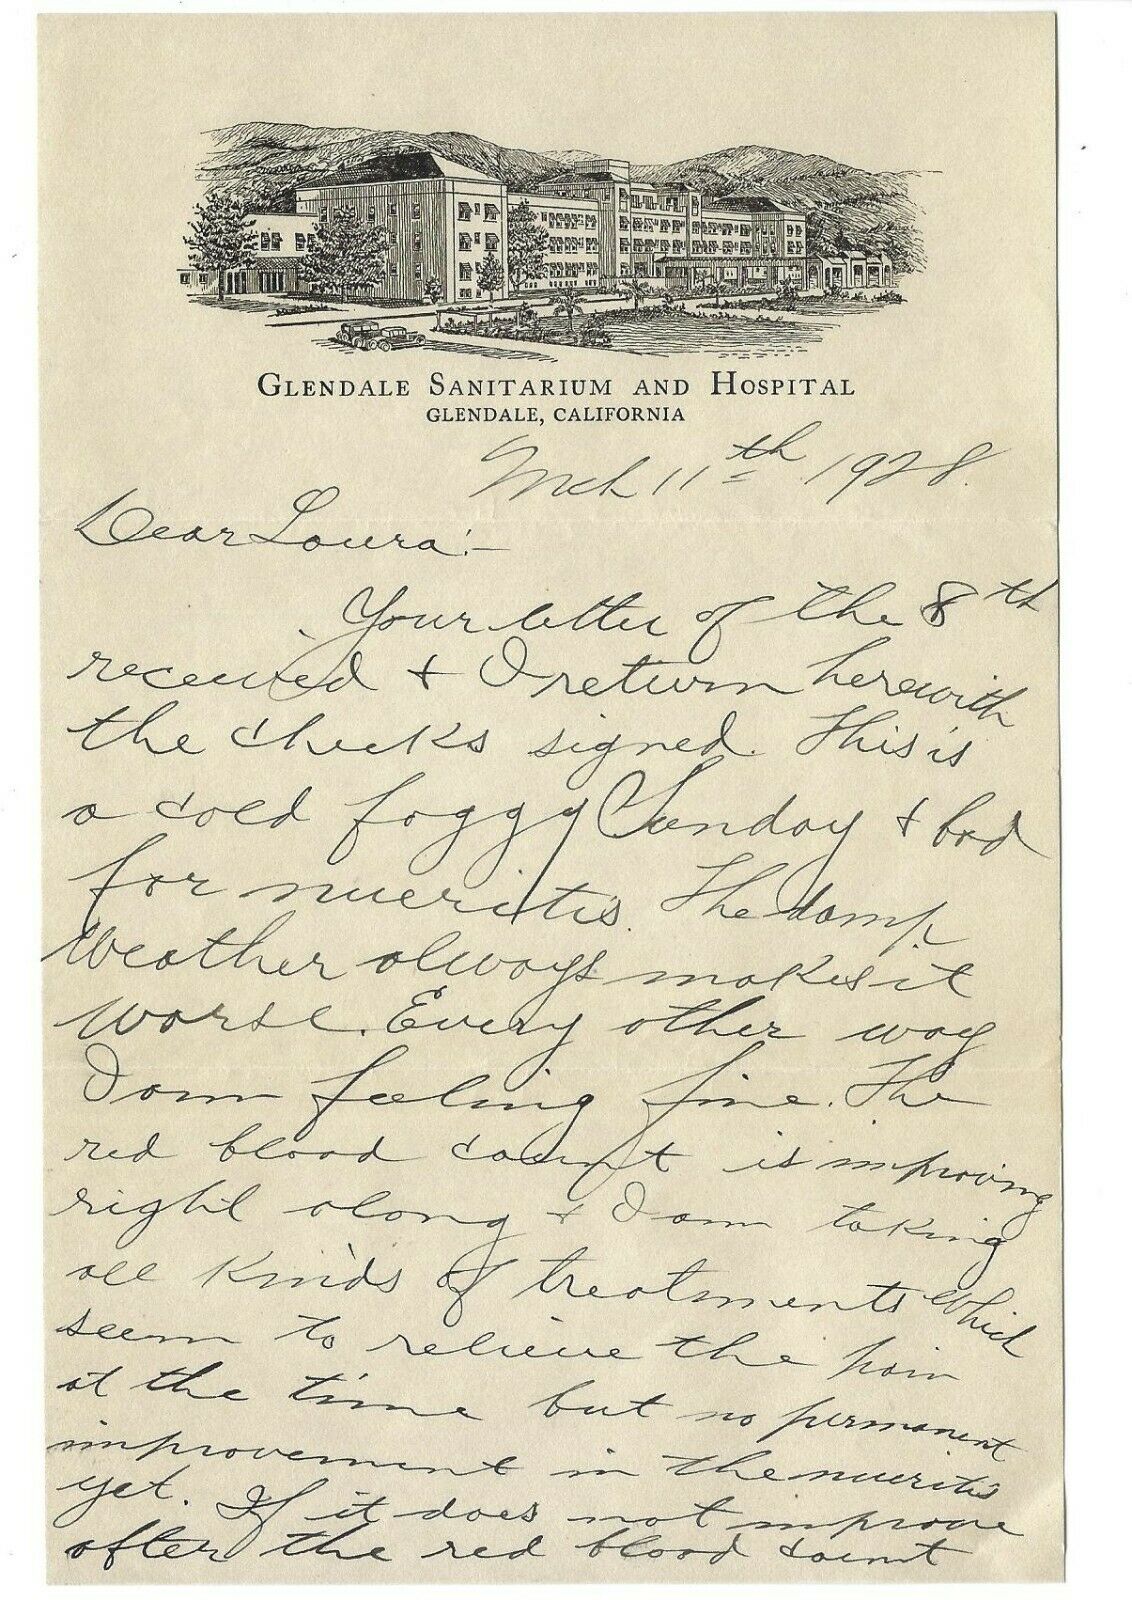 GLENDALE SANITARIUM AND HOSPITAL
GLENDALE, CALIFORNIA
Mch 11th 1928.
Dear Loura:-
Your letter of the 8th
received & I return herewith
the checks signed. This is
a cold foggy Sunday & bad
for nueritis. The damp
weather always makes it
worse. Every other way
I am feeling fine. The
red blood count is improving
right along & I am taking
all kinds of treatments which
seem to relieve the pain
at the time but no permanent
improvement in the nueritis
yet. If it does not improve
after the red blood count